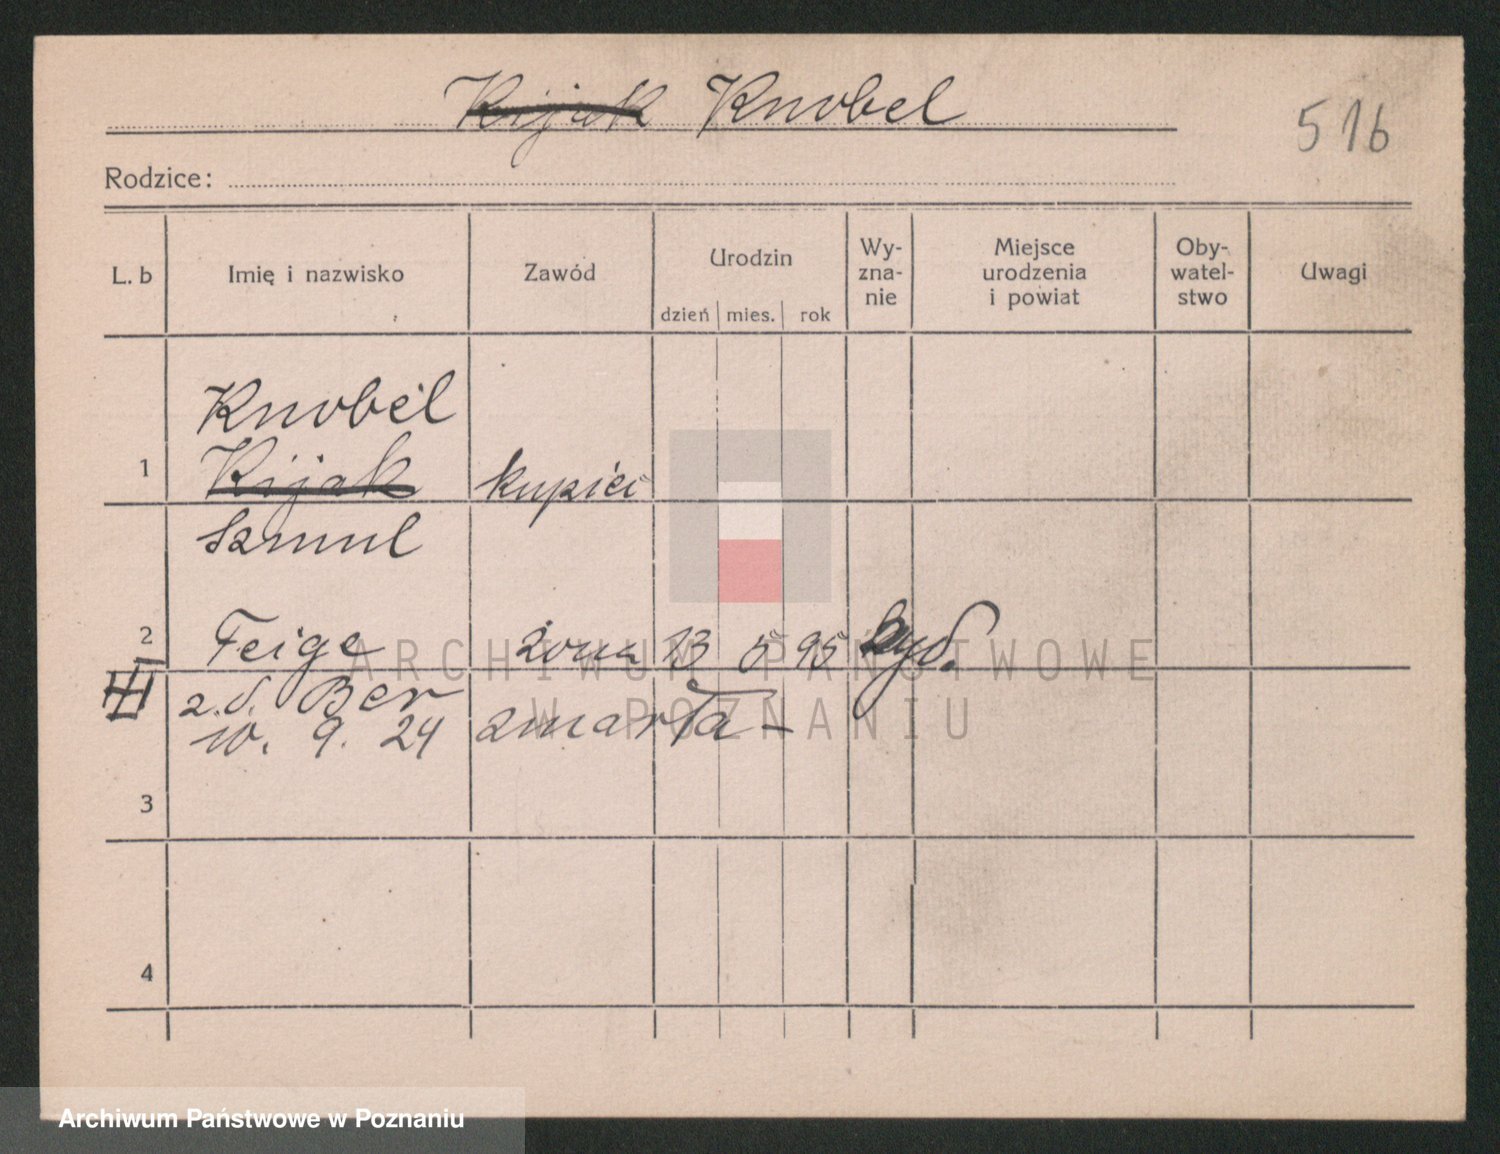 Kijak Knobel
516
Rodzice:
L. b
Imię i nazwisko
Zawód
Urodzin
dzień mies. rok
Wy-
zna-
nie
Miejsce
urodzenia
i powiat
Oby-
watel-
stwo
Uwagi
Knobel
1 Kijak kupiec
Szmul
2 Feige żona 13 5 95 żyd.
z. d. Ber
10. 9. 24 zmarła -
3
4
ARCHIWUM PAŃSTWOWE
W POZNANIU
Archiwum Państwowe w Poznaniu